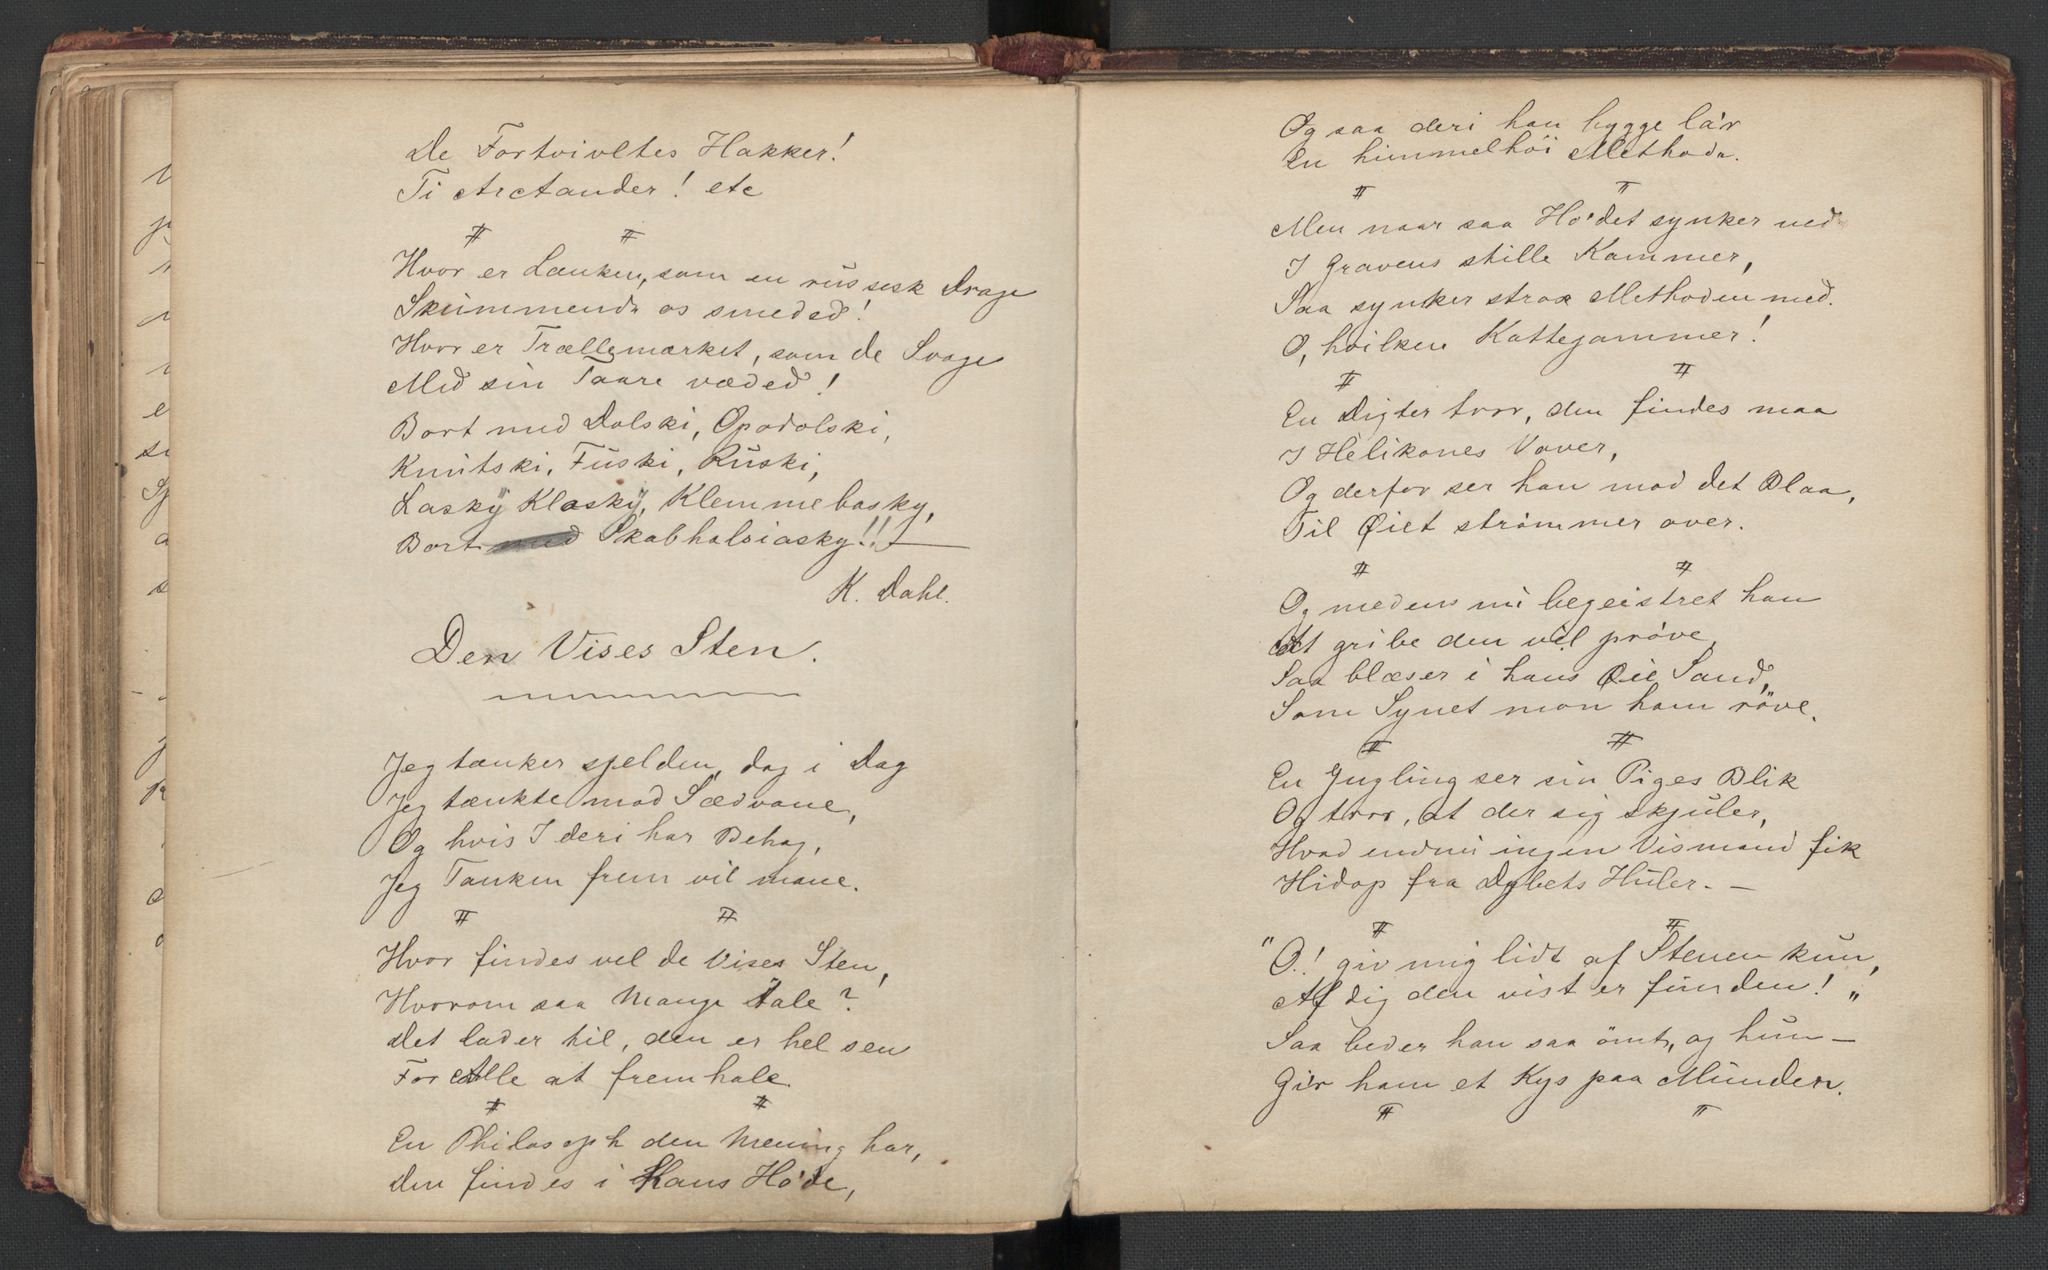 De Fortvivltes Hakker!
Ti Arctander! etc
# #
Hvor er Lænken, som en russisk Drage
Skummende os smeded!
Hvor er Trællemærket, som de Svage
Med sin Taare væded!
Bort med Dolski, Opodolski,
Knutski, Fuski, Ruski,
Lasky Klasky, Klemmebasky,
Bort med Skabhalsiasky!! —
K. Dahl.
Den Vises Sten.
Jeg tænker sjelden, dag i Dag
Jeg tænkte mod Sædvane,
Og hvis I deri har Behag,
Jeg Tanken frem vil mane.
# #
Hvor findes vel de Vises Sten,
Hvorom saa Mange tale?
Det lader til, den er hel sen
For Alle at fremhale
# #
En Philosoph den Mening har,
Den findes i Hans Ho'de,
Og saa deri han bygge la'r
En himmelhöi Methode.
# #
Men naar saa Ho'det synker ned
I Gravens stille Kammer,
Saa synker strax Methoden med.
O, hvilken Kattejammer!
# #
En Digter tror, den findes maa
I Helikones Vover,
Og derfor ser han mod det Blaa,
Til Øiet strömmer over.
# #
Og medens nu begeistret han
At gribe den vil pröve,
Saa blæser i hans Øie Sand,
Som Synet mon ham röve.
# #
En Yngling ser sin Piges Blik
Og tror, at der sig skjuler,
Hvad endnu ingen Vismand fik
Hidop fra Dybets Huler. —
# #
"O! giv mig lidt af Stenen kun,
Af dig den vist er funden! "
Saa beder han saa ömt, og hun —
Gi'r ham et Kys paa Munden.
# #